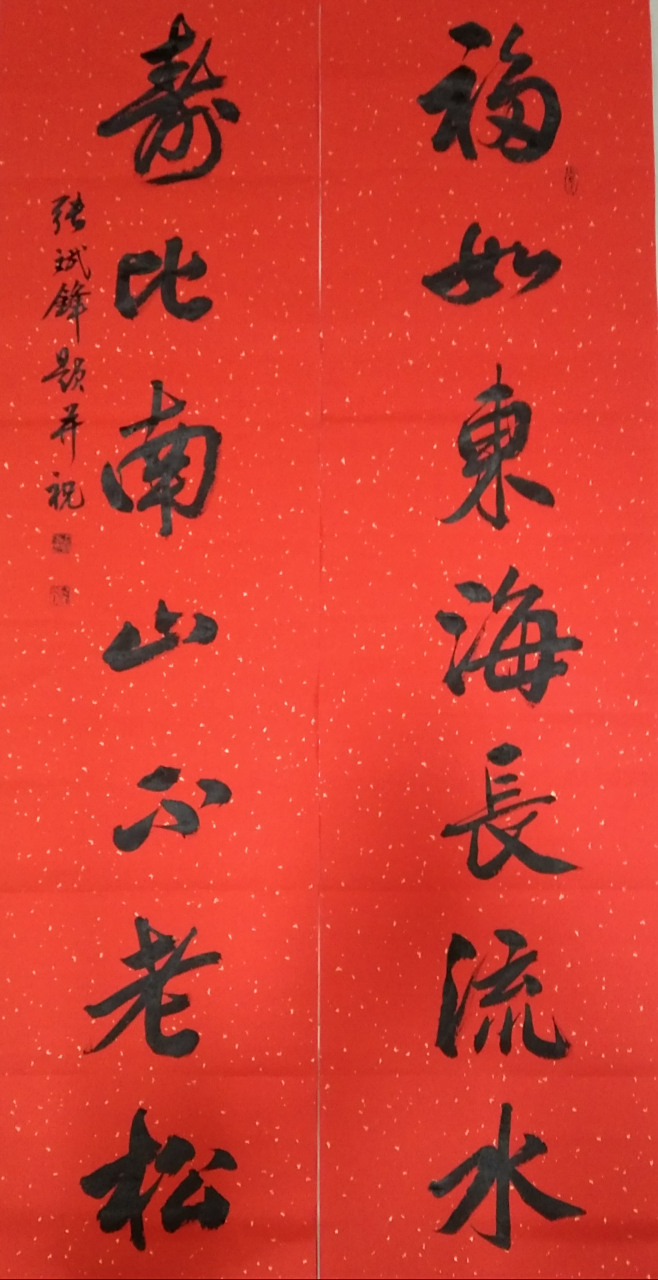 福如東海長流水
壽比南山不老松
張斌鋒題并祝